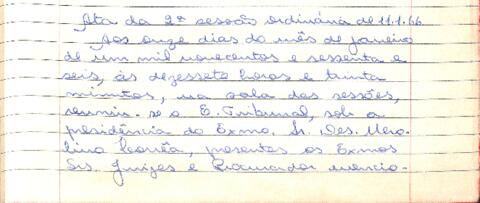 Ata da 2ª sessão ordinária de 11.1.66
Aos onze dias do mês de janeiro
de um mil novecentos e sessenta e
seis, às dezessete horas e trinta
minutos, na sala das sessões,
reuniu-se o E. Tribunal, sob a
presidência do Exmo. Sr. Des. Mero-
lino Corrêa, presentes os Exmos
Srs. Juizes e Procurador mencio-